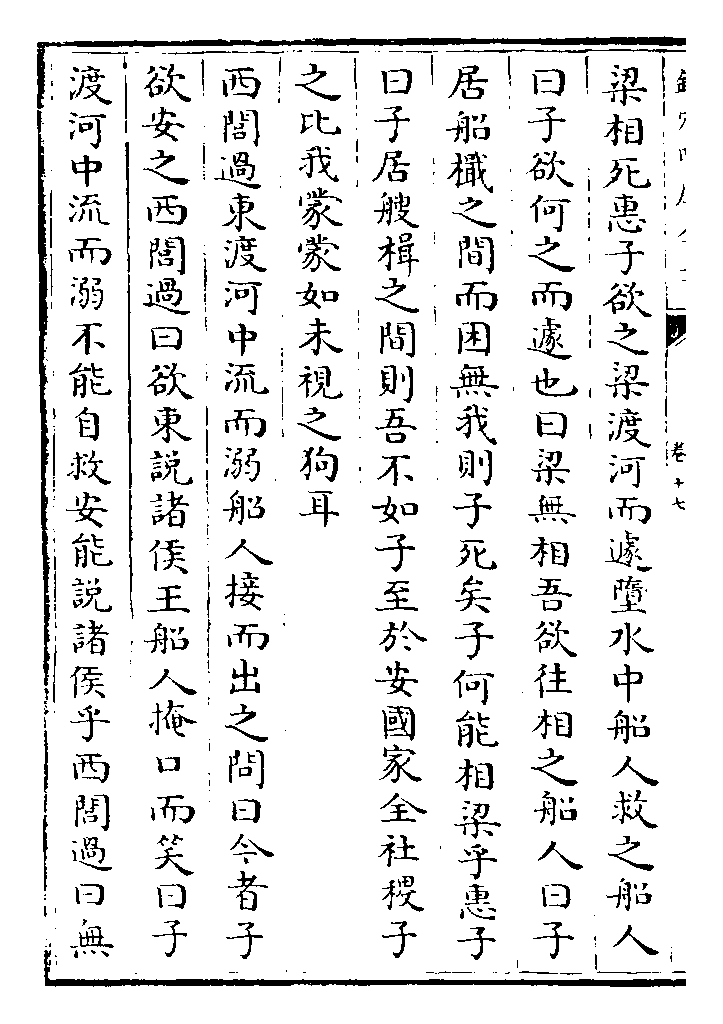 梁相死惠子欲之梁渡河而遽墮水中船人救之船人
曰子欲何之而遽也曰梁無相吾欲往相之船人曰子
居船檝之間而困無我則子死矣子何能相梁乎惠子
曰子居艘楫之間則吾不如子至於安國家全社稷子
之比我蒙蒙如未視之狗耳
西閭過東渡河中流而溺船人接而出之問曰今者子
欲安之西閭過曰欲東説諸侯王船人掩口而笑曰子
渡河中流而溺不能自救安能説諸侯乎西閭過曰無
卷十七